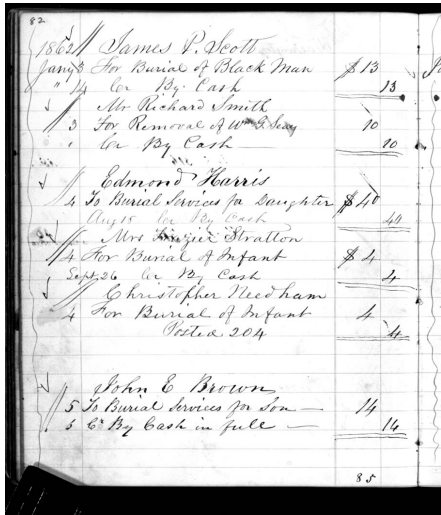 82
1862 James P. Scott
Jany 3 For Burial of Black Man $13
" 4 Cr By Cash 13
Mr Richard Smith
3 For Removal of Wm G. 10
" Cr By Cash 10
Edmond Harris
4 To Burial Services for Daughter $40
Aug 18 Cr By Cash 40
Mrs Frazier Stratton
4 For Burial of Infant $4
Sept 26 Cr By Cash 4
Christopher Needham
4 For Burial of Infant 4
Posted 204 4
John E Brown
5 To Burial Services for Son 14
5 Cr By Cash in full 14
85